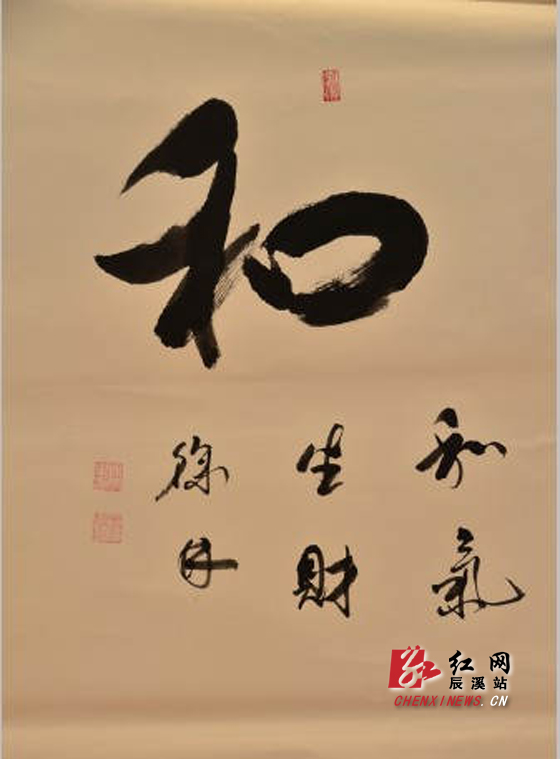 和
和氣
生財
红网
辰溪站
CHENXINEWS.CN